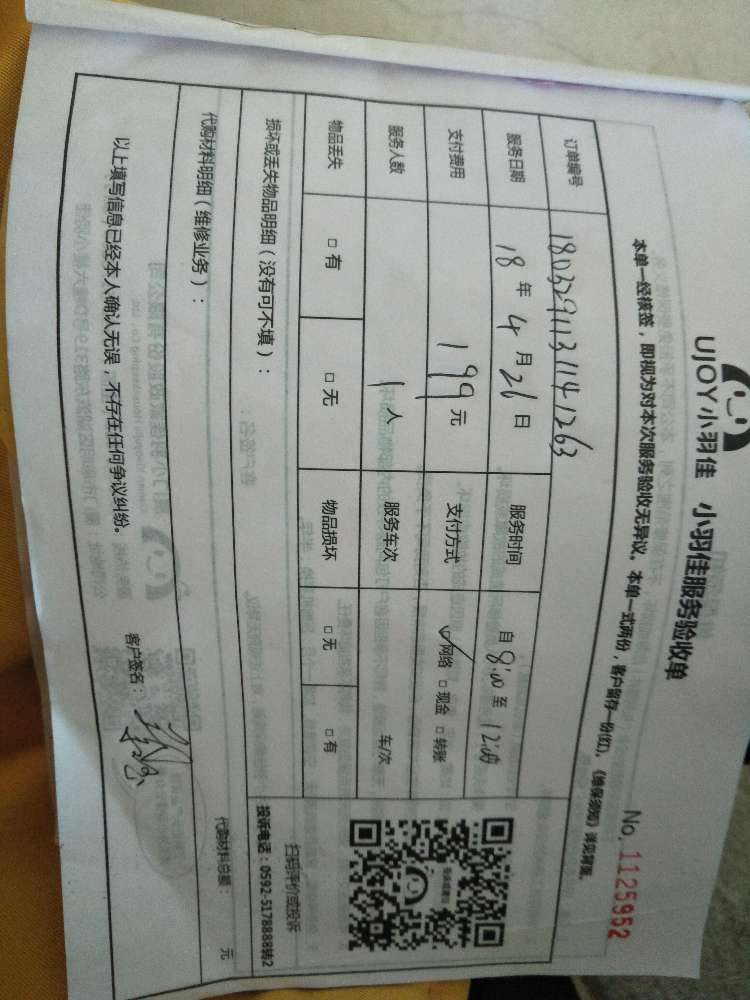 UJOY小羽佳 小羽佳服务验收单
No. 1125952
本单一经核签，即视为对本次服务验收无异议。本单一式两份，客户留存一份(红)，《维保须知》详见背面。
订单编号 1803291131141263
服务日期 18 年 4 月 26 日 服务时间 自 8:00 至 12:00
支付费用 199 元 支付方式 ☑网络 □ 现金 □ 转账
服务人数 1 人 服务车次 车/次
物品丢失 □ 有 □ 无 物品损坏 □ 无 □ 有
扫码评价或投诉
投诉电话：0592-5178888转2
损坏或丢失物品明细（没有可不填）：
代购材料明细（维修业务）： 代购材料总额： 元
以上填写信息已经本人确认无误，不存在任何争议纠纷。
客户签名：